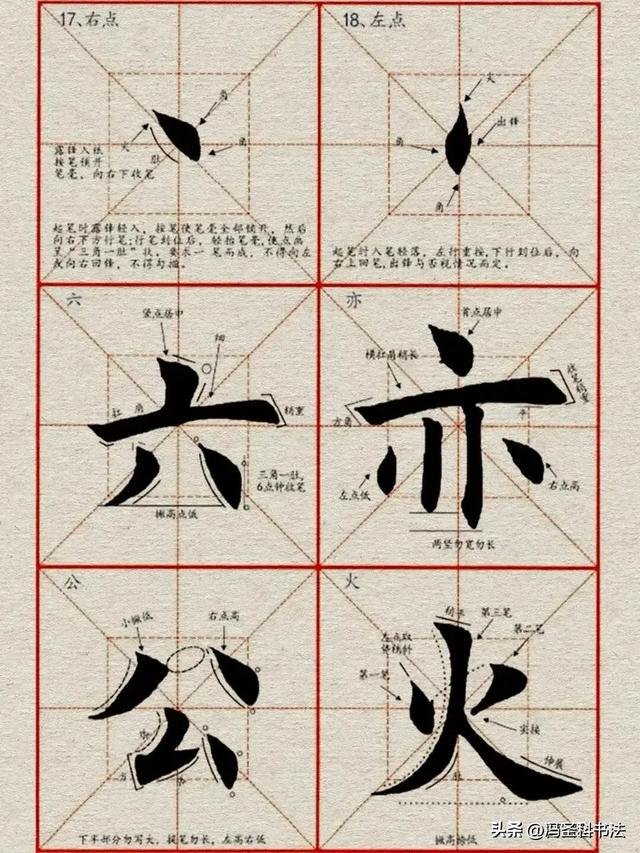 17、右点
角
角
火
肚
露锋入纸
按笔铺开
笔毫，向右下收笔
起笔时露锋轻入，按笔使笔毫全部铺开，然后
向右下方行笔；行笔到位后，轻抬笔毫，使点画
呈“三角一肚”状，要求一笔而成，不得向左
或向右回锋，不得勾描。
18、左点
尖
出锋
角
角
起笔时入笔轻落，左行重按，下行到位后，向
右上回笔，出锋与否视情况而定。
六
竖点居中
细
扛
角
稍重
三角一肚，
6点钟收笔
撇高点低
亦
首点居中
横扛肩稍长
收笔稍重
方角
平
左点低
右点高
两竖勿宽勿长
公
小撇低
右点高
方
下半部分勿写大，提笔勿长，左高右低
火
稍长
第三笔
第二笔
左点取
第一笔
实接
肚
伸展
撇高捺低
头条 @冯圣科书法